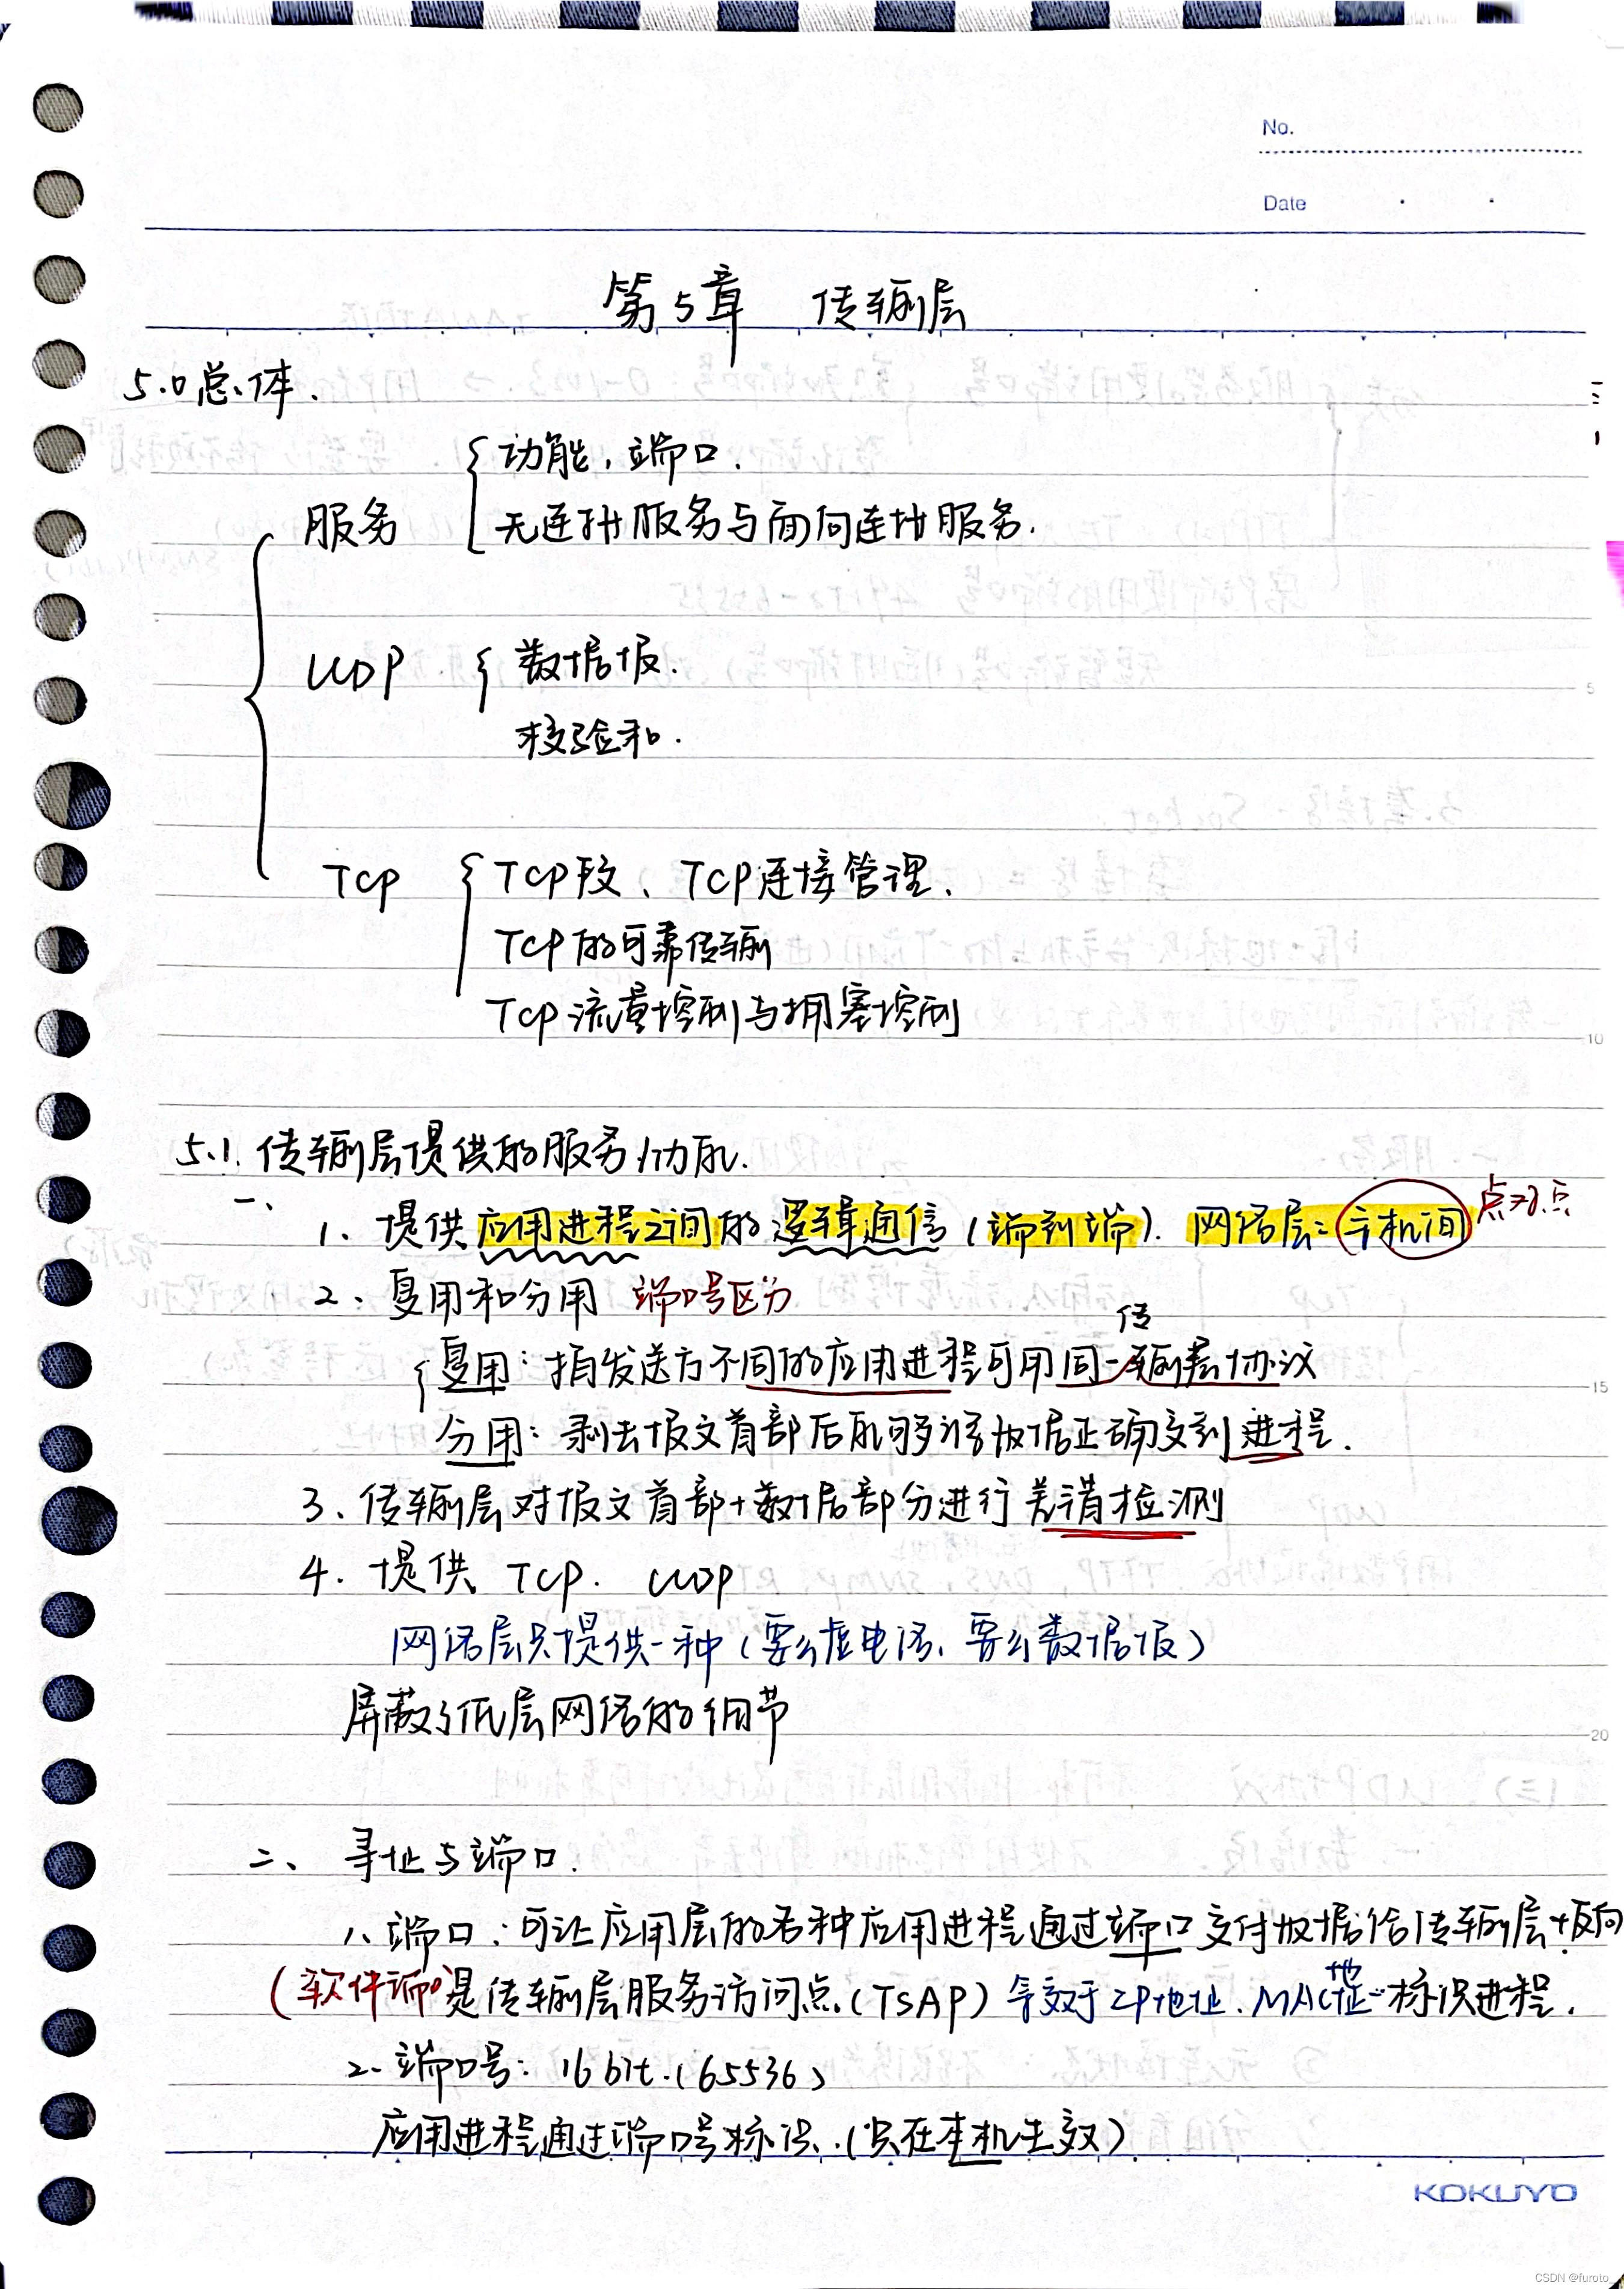 No.
Date
第5章 传输层
5.0总体.
服务
功能,端口.
无连接服务与面向连接服务.
UDP
数据报.
校验和.
TCP
TCP段、TCP连接管理.
TCP的可靠传输
TCP流量控制与拥塞控制
5
10
5.1.传输层提供的服务/功能.
一、
1. 提供应用进程之间的逻辑通信(端到端). 网络层:主机间 点对点
2、复用和分用 端口号区分
复用:指发送方不同的应用进程可用同一传输层协议
15
分用:剥去报文首部后能够将数据正确交到进程.
3、传输层对报文首部+数据部分进行差错检测
4. 提供 TCP. UDP
网络层只提供一种(要么虚电路、要么数据报)
屏蔽了低层网络的细节
20
二、寻址与端口.
1、端口:可让应用层的各种应用进程通过端口交付数据给传输层+反向
(软件端口)是传输层服务访问点(TSAP) 等效于IP地址、MAC地址…标识进程.
2、端口号:16bit.(65536)
应用进程通过端口号标识.(只在本机生效)
KOKUYO
CSDN @furoto